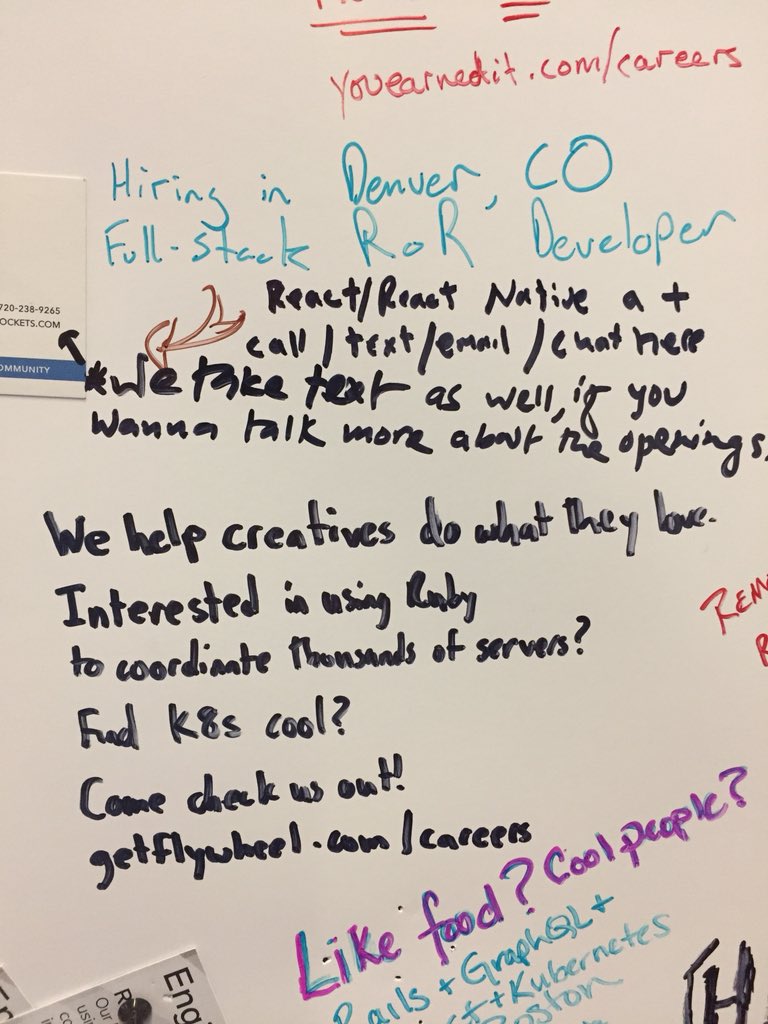 youearnedit.com/careers
Hiring in Denver, CO
Full-Stack RoR Developer
720-238-9265
OCKETS.COM
OMMUNITY
React/React Native a +
call/text/email/chat here
*We take text as well, if you
wanna talk more about the openings.
We help creatives do what they love.
Interested in using Ruby
to coordinate thousands of servers?
Find K8s cool?
Come check us out!
getflywheel.com/careers
REM
Like food? Cool people?
Rails + GraphQL +
+ Kubernetes
Boston
Eng
Our
usin